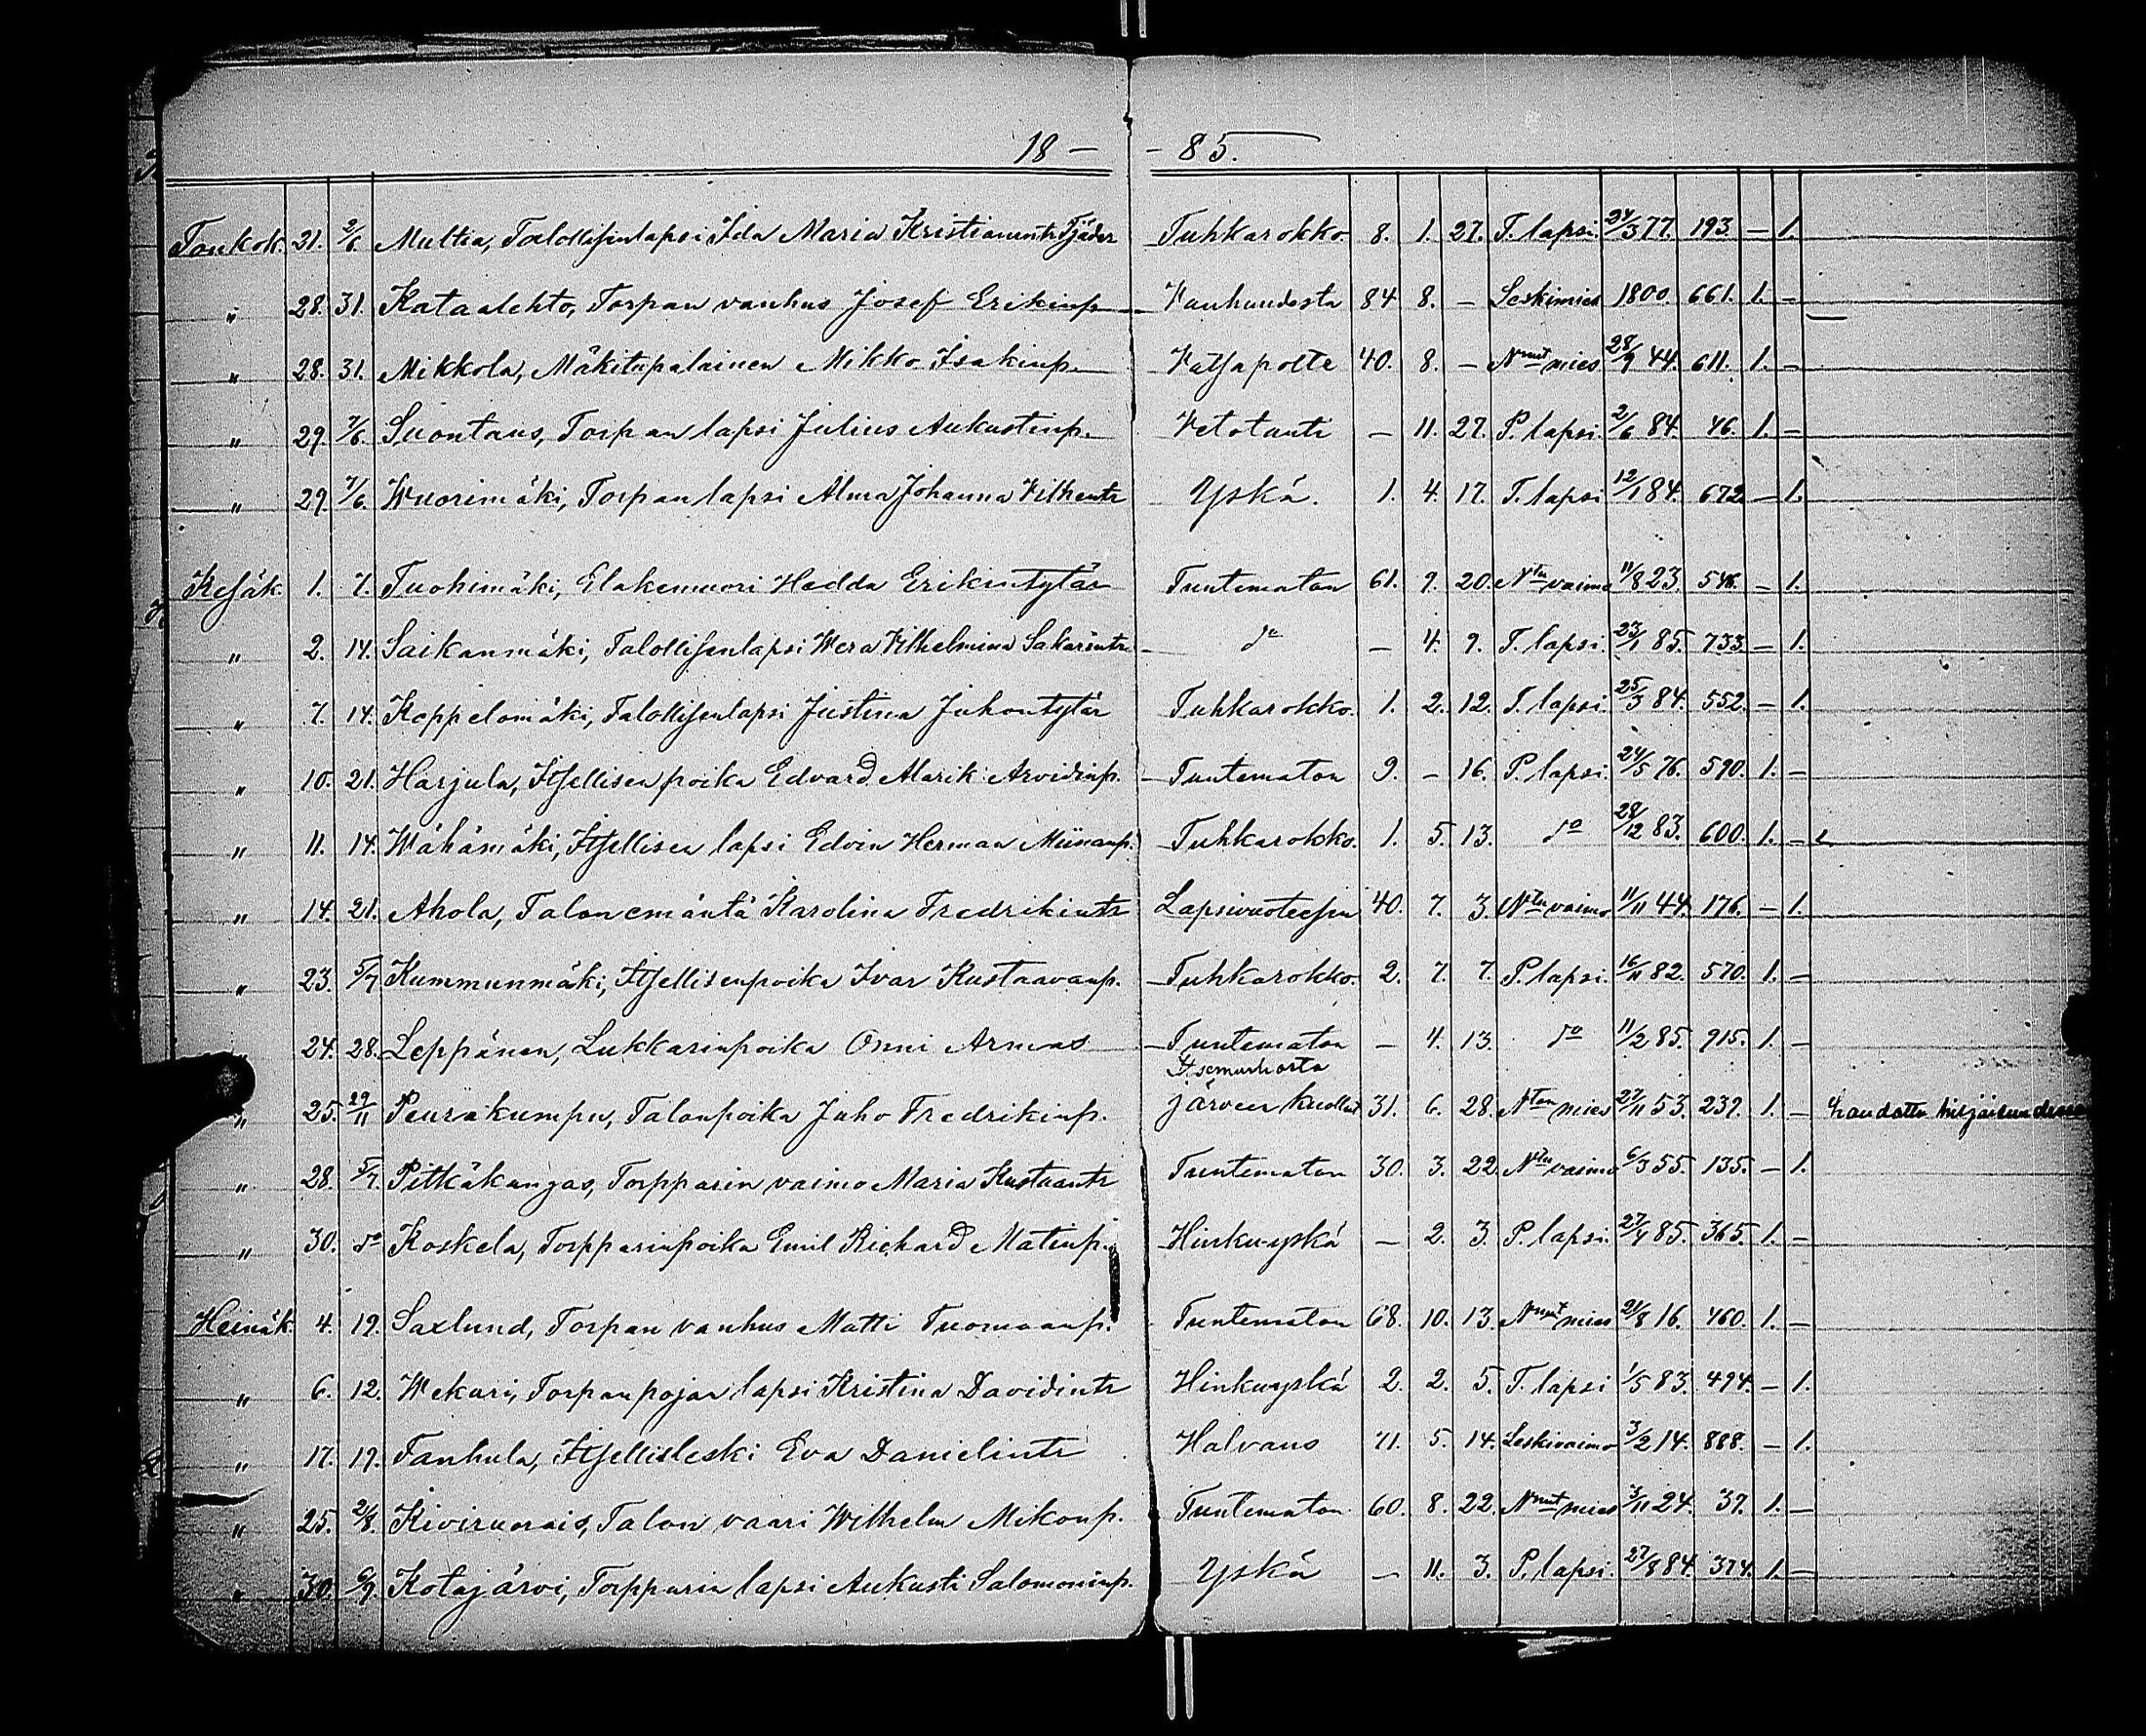 18 — — 85.
Toukok. 21. 2/6 Multia, Talollisenlapsi Ida Maria Kristianintr Tjäder Tuhkarokko. 8. 1. 27. T. lapsi. 24/3 77. 193. — 1.
" 28. 31. Kataalehto, Torpan vanhus Josef Erikinp. Vanhuudesta 84 8. — Leskimies 1800. 661. 1. —
" 28. 31. Mikkola, Mäkitupalainen Mikko Isakinp. Vatsapolte 40. 8. — Nnut mies 28/9 44. 611. 1. —
" 29. 7/6. Suontaus, Torpan lapsi Julius Aukustinp. Vetotauti — 11. 27. P. lapsi. 2/6 84. 46. 1. —
" 29. 7/6. Wuorimäki, Torpan lapsi Alma Johanna Vilhentr Yskä. 1. 4. 17. T. lapsi 12/1 84. 672. — 1.
Kesäk. 1. 7. Tuohimäki, Elakemuori Hedda Erikintytär Tuntematon 61. 9. 20. Ntu vaimo 11/8 23. 546. — 1.
" 2. 14. Saikanmäki, Talollisenlapsi Wera Vilhelmina Sakarintr. do — 4. 9. T. lapsi. 23/1 85. 733. — 1.
" 7. 14. Koppelomäki, Talollisenlapsi Justina Juhontytär Tuhkarokko. 1. 2. 12. T. lapsi. 25/3 84. 552. — 1.
" 10. 21. Harjula, Itsellisen poika Edvard Alarik Arvidinp. Tuntematon 9. — 16. P. lapsi. 24/5 76. 590. 1. —
" 11. 14. Wähämäki, Itsellisen lapsi Edvin Herman Miinanp. Tuhkarokko. 1. 5. 13. do 28/12 83. 600. 1. —
" 14. 21. Ahola, Talon emäntä Karolina Fredrikintr Lapsivuoteesen 40. 7. 3. Ntu vaimo 11/11 44. 176. — 1.
" 23. 5/7 Kummunmäki, Itsellisenpoika Ivar Kustaavanp. Tuhkarokko. 2. 7. 7. P. lapsi. 16/11 82. 570. 1. —
" 24. 28. Leppänen, Lukkarinpoika Onni Armas Tuntematon — 4. 13. do 11/2 85. 915. 1. —
Itsemurhasta
" 25. 29/11 Peurakumpu, Talonpoika Juho Fredrikinp. järveen kuollut 31. 6. 28. Nton mies 27/11 53. 239. 1. — haudattu hiljaisuudessa
" 28. 5/7. Pitkäkangas, Torpparin vaimo Maria Kustaantr Tuntematon 30. 3. 22 Ntu vaimo 6/3 55. 135. — 1.
" 30. do Koskela, Torpparinpoika Emil Richard Matinp. Hinkuyskä — 2. 3. P. lapsi. 27/4 85. 365. 1. —
Heinäk. 4. 19. Saxlund, Torpan vanhus Matti Tuomaanp. Tuntematon 68. 10. 13. Nnut mies 21/8 16. 460. 1. —
" 6. 12. Wekari, Torpanpojan lapsi Kristina Davidintr Hinkuyskä 2. 2. 5. T. lapsi 1/5 83. 494. — 1.
" 17. 19. Tanhula, Itsellisleski Eva Danielintr Halvaus 71. 5. 14. Leskivaimo 3/2 14. 888. — 1.
" 25. 2/8. Kiviruorais, Talon vaari Wilhelm Mikonp. Tuntematon 60. 8. 22. Nnut mies 3/11 24. 37. 1. —
" 30. 9/9. Kotajärvi, Torpparin lapsi Aukusti Salomoninp. Yskä — 11. 3. P. lapsi. 27/8 84. 374. 1. —